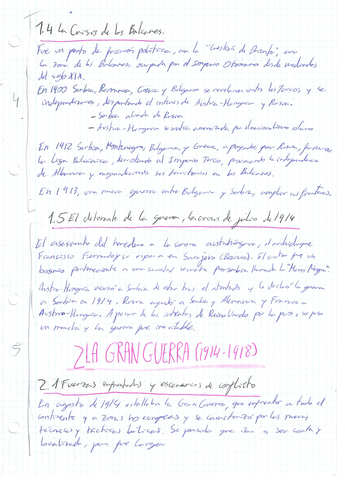 1.4 La Crisis de los Balcanes.
Fue un punto de fricción política, con la "Cuestión de Oriente", era
la zona de los Balcanes, ocupada por el Imperio Otomano desde mediados
del siglo XIX.
En 1900 Serbia, Rumanía, Grecia y Bulgaria se revelaron contra los Turcos y se
independizaron, despertando el interés de Austria-Hungría y Rusia.
- Serbia aliada de Rusia
- Austria-Hungría se sentía amenazada por el nacionalismo eslavo
4
En 1912 Serbia, Montenegro, Bulgaria y Grecia, apoyados por Rusia, formaron
la Liga Balcánica, derrotando al Imperio Turco, provocando la independencia
de Albania y expandiendo sus territorios en los Balcanes.
En 1913, una nueva guerra entre Bulgaria y Serbia, amplían sus fronteras.
1.5 El detonante de la guerra, la crisis de julio de 1914
El asesinato del heredero a la corona austrohúngara, el archiduque
Francisco Fernando y su esposa en Sarajevo (Bosnia). El autor fue un
bosnio perteneciente a una sociedad secreta paraserbia llamada la "Mano Negra".
Austria-Hungría acusó a Serbia de estar tras el atentado y le declaró la guerra
a Serbia en 1914. Rusia ayudó a Serbia y Alemania y Francia a
Austria-Hungría. A pesar de los intentos de Reino Unido por la paz, se puso
en marcha y la guerra fue inevitable.
5
2 LA GRAN GUERRA (1914-1918)
2.1 Fuerzas enfrentadas y escenarios de conflicto
En agosto de 1914 estallaba la Gran Guerra, que enfrentó a todo el
continente y a zonas no europeas y se caracterizó por las nuevas
técnicas y tácticas bélicas. Se pensaba que iba a ser corta y
localizada, pero fue larga